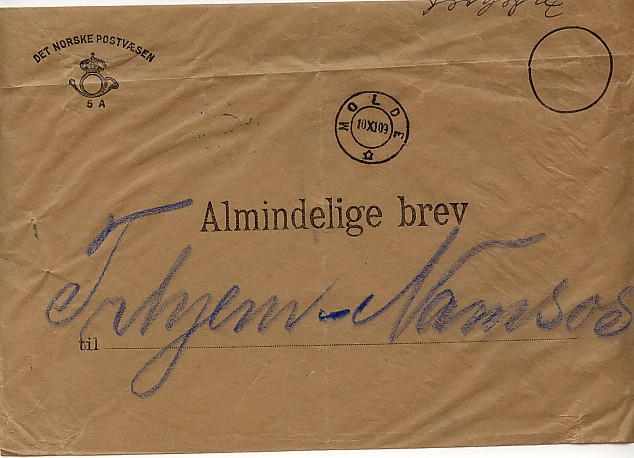 DET NORSKE POSTVÆSEN
5 A
MOLDE
10XI09
Almindelige brev
Trhjem-Namsos
til